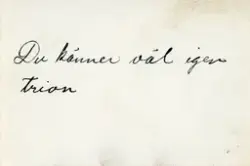 Du känner väl igen
trion